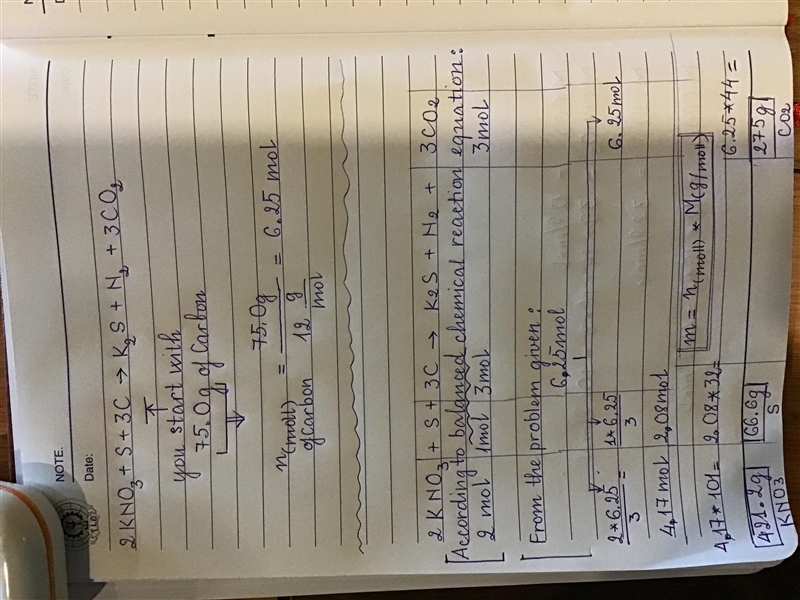 NOTE.
Date:
2KNO3 + S + 3C → K2S + N2 + 3CO2
you start with
75.0g of Carbon
n(moll) of Carbon = 75.0g / 12 g/mol = 6.25 mol
2KNO3 + S + 3C → K2S + N2 + 3CO2
[According to balanced chemical reaction equation:
2 mol 1mol 3mol 3mol
[From the problem given:
6,25mol
2*6.25/3 = 1*6.25/3 6.25mol
4,17 mol 2,08 mol
m = n(moll) * M(g/moll)
4,17*101= 2,08*32= 6.25*44=
421.2g 66.6g 275g
KNO3 S CO2